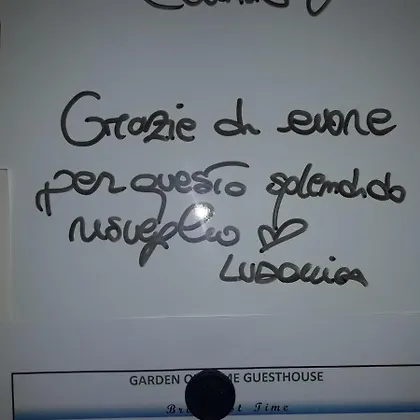 Grazie di cuore
per questo splendido
risveglio ♡
LUDOVICA
GARDEN O ME GUESTHOUSE
Br t Time